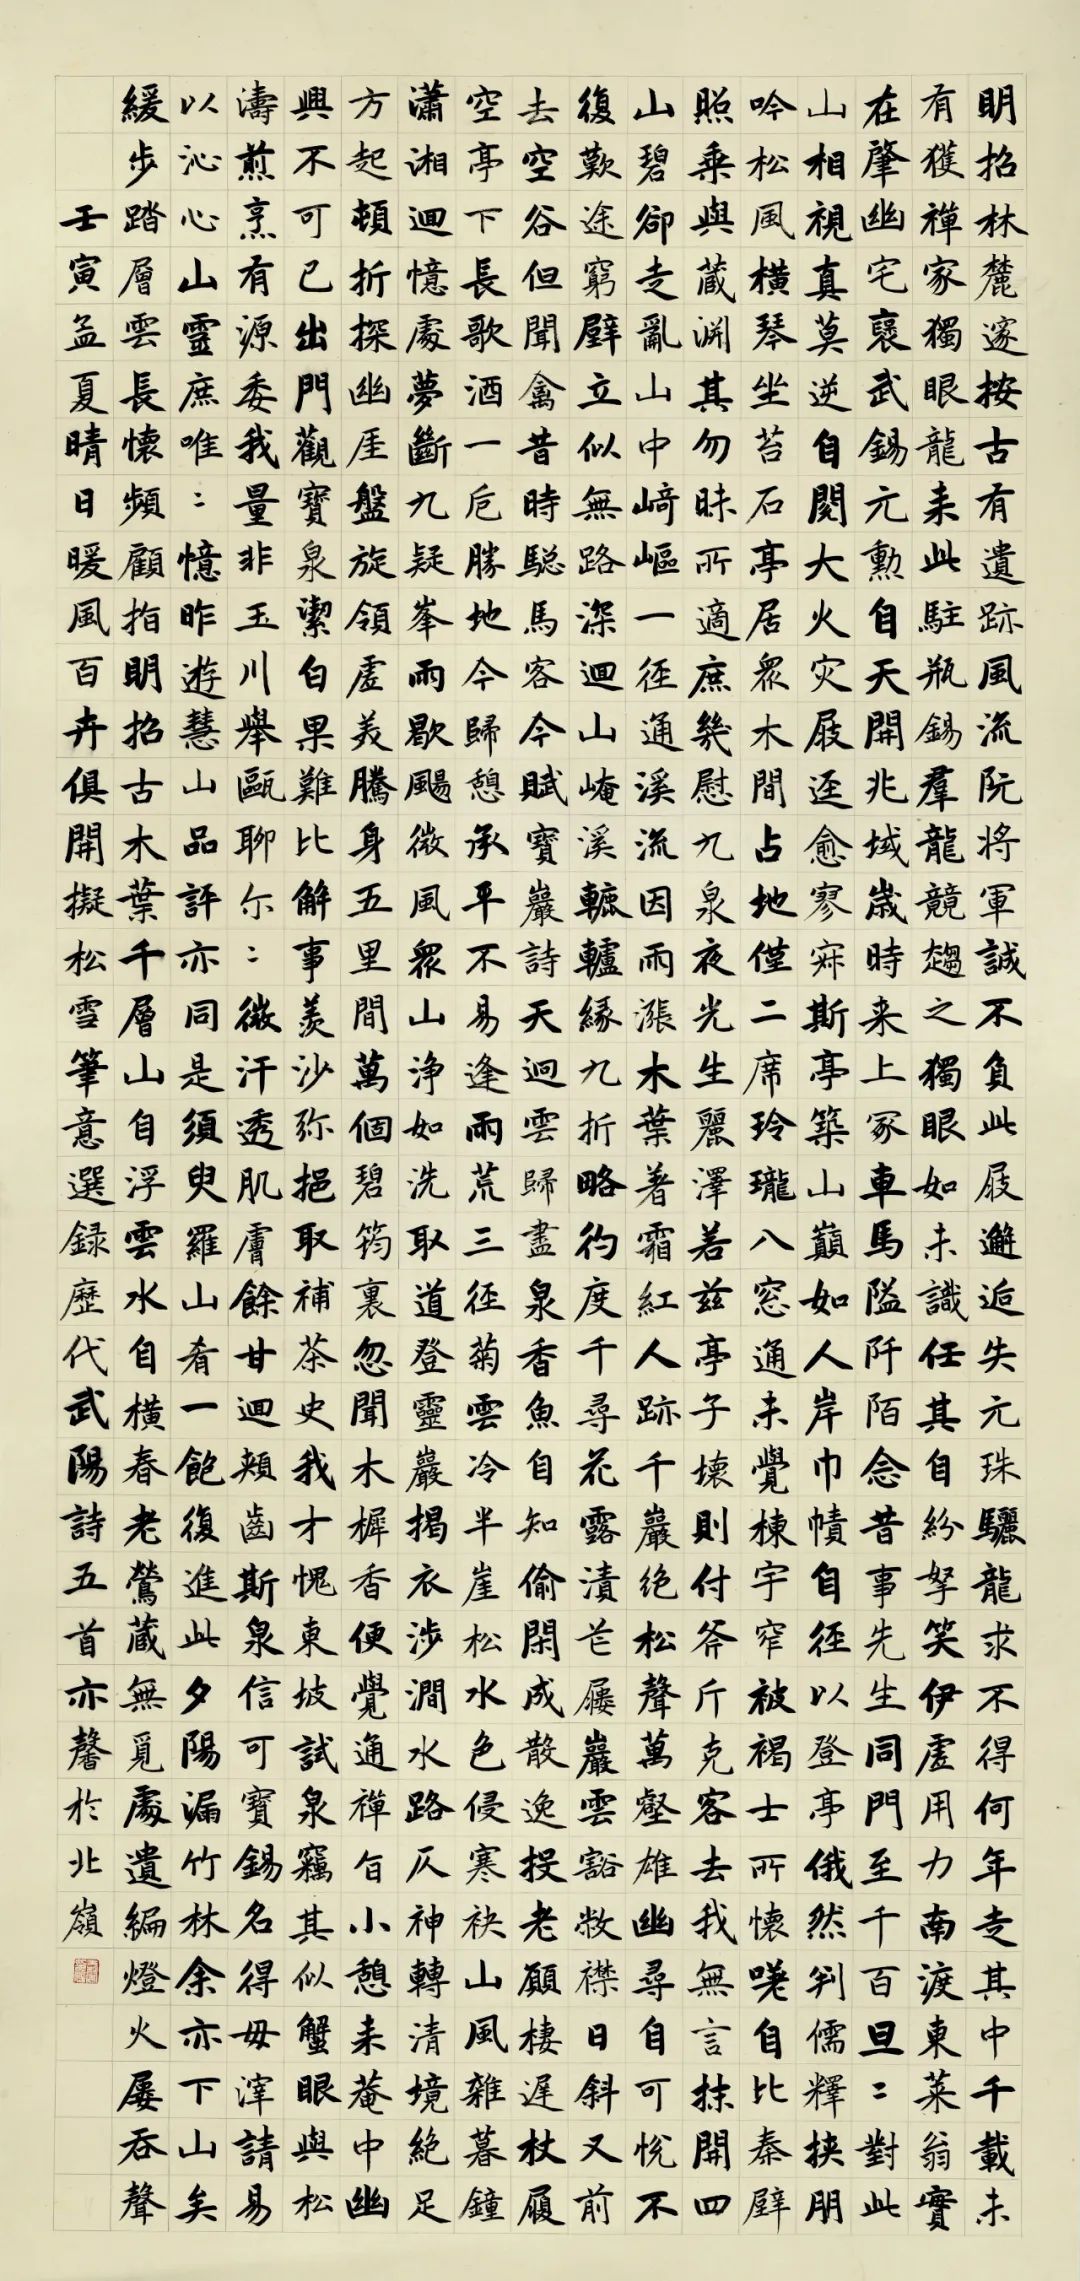 明招林麓邃按古有遺跡風流阮將軍誠不負此屐邂逅失元珠驪龍求不得何年走其中千載未
有獲禪家獨眼龍来此駐瓶錫羣龍競趨之獨眼如未識任其自紛拏笑伊虛用力南渡東萊翁實
在肇幽宅襃武錫元勳自天開兆域歲時来上冢車馬隘阡陌念昔事先生同門至千百旦〻對此
山相視真莫逆自閱大火灾屐迳愈寥寂斯亭築山巔如人岸巾幘自徑以登亭俄然判儒釋挾朋
吟松風橫琴坐苔石亭居眾木間占地僅二席玲瓏八窓通未覺棟宇窄被褐士所懷嘆自比秦璧
照乘與藏渊其勿昧所適庶幾慰九泉夜光生麗澤若兹亭子壊則付斧斤克客去我無言抹開四
山碧卻走亂山中崎嶇一徑通溪流因雨漲木葉著霜紅人跡千巖絶松聲萬壑雄幽尋自可悅不
復歎途窮壁立似無路深迴山崦溪轆轤緣九折略彴度千尋花露漬芒屨巖雲豁敝襟日斜又前
去空谷但聞禽昔時驄馬客今賦寶巖詩天迥雲歸盡泉香魚自知偷閑成散逸投老願棲遲杖履
空亭下長歌酒一卮勝地今歸憩承平不易逢雨荒三徑菊雲冷半崖松水色侵寒袂山風雜暮鐘
瀟湘迴憶處夢斷九疑峯雨歇颺微風眾山浄如洗取道登靈巖揭衣涉澗水路仄神轉清境絕足
方起頓折探幽厓盤旋領虛美騰身五里間萬個碧筠裏忽聞木樨香便覺通禪旨小憩来菴中幽
興不可已出門觀寶泉潔白果難比解事羨沙弥挹取補茶史我才愧東坡試泉竊其似蟹眼與松
濤煎烹有源委我量非玉川舉甌聊尔〻微汗透肌膚餘甘迴頰齒斯泉信可寶錫名得毋滓請易
以沁心山靈庶唯〻憶昨遊慧山品評亦同是須臾羅山肴一飽復進此夕陽漏竹林余亦下山矣
緩步踏層雲長懷頻顧指明招古木葉千層山自浮雲水自橫春老鶯藏無覓處遺編燈火屡吞聲
壬寅孟夏晴日暖風百卉俱開擬松雪筆意選録歷代武陽詩五首亦馨於北嶺